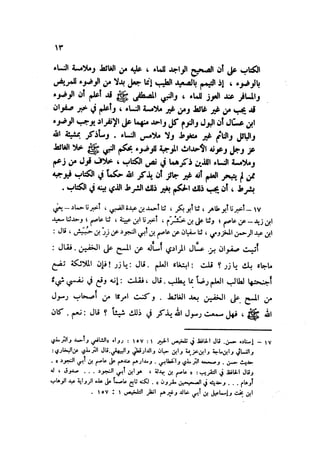 ١٣
الكتاب على أن الصحيح الواجد للماء ، عليه من الغائط وملامسة النساء
بالوضوء ، إذ التيمم بالصعيد الطيب إنما جعل بدلاً من الوضوء للمريض
والمسافر عند العوز للماء ، والنبي المصطفى ﷺ قد أعلم أن الوضوء
قد يجب من غير غائط ومن غير ملامسة النساء ، وأعلم في خبر صفوان
ابن عسال أن البول والنوم كل واحد منهما على الإنفراد يوجب الوضوء
والبائل والنائم غير متغوط ولا ملامس النساء . وسأذكر بمشيئة الله
عز وجل وعونه الأحداث الموجبة للوضوء بحكم النبي ﷺ خلا الغائط
وملامسة النساء اللذين ذكرهما في نص الكتاب ، خلاف قول من زعم
ممن لم يتبحر العلم أنه غير جائز أن يذكر الله حكماً في الكتاب فيوجبه
بشرط ، أن يجب ذلك الحكم بغير ذلك الشرط الذي بينه في الكتاب .
١٧ – أخبرنا أبو طاهر ، نا أبو بكر ، ثنا أحمد بن عبدة الضبي ، أخبرنا حماد – يعني
ابن زيد – عن عاصم ؛ وثنا علي بن خشرم ، أخبرنا ابن عيينة ، ثنا عاصم ؛ وحدثنا سعيد
ابن عبد الرحمن المخزومي ، ثنا سفيان عن عاصم بن أبي النجود عن زر بن حبيش ، قال :
أتيت صفوان بن عسال المرادي أسأله عن المسح على الخفين . فقال :
ماجاء بك يازر ؟ قلت : ابتغاء العلم . قال : يازر ! فإن الملائكة تضع
أجنحتها لطالب العلم رضاً بما يطلب . قال ، فقلت : إنه وقع في نفسي شيء
من المسح على الخفين بعد الغائط . وكنت امرءاً من أصحاب رسول
الله ﷺ ، فهل سمعت رسول الله يذكر في ذلك شيئاً ؟ قال : نعم . كان
١٧ – إسناده حسن . قال الحافظ في تلخيص الحبير ١ : ١٥٧ : رواه الشافعي وأحمد والترمذي
والنسائي وابن ماجة وابن خزيمة وابن حبان والدارقطني والبيهقي . قال الترمذي عن البخاري :
حديث حسن . وصححه الترمذي والخطابي . ومدارهم عندهم على عاصم بن أبي النجود ،
وقال الحافظ في التقريب : « عاصم بن بهدلة ، هو ابن أبي النجود ... صدوق ، له
أوهام ... وحديثه في الصحيحين مقرون » . لكنه تابع عاصماً على هذه الرواية عبد الوهاب
ابن بخت وإسماعيل بن أبي خالد وغيرهم انظر التلخيص ١ : ١٥٧ .